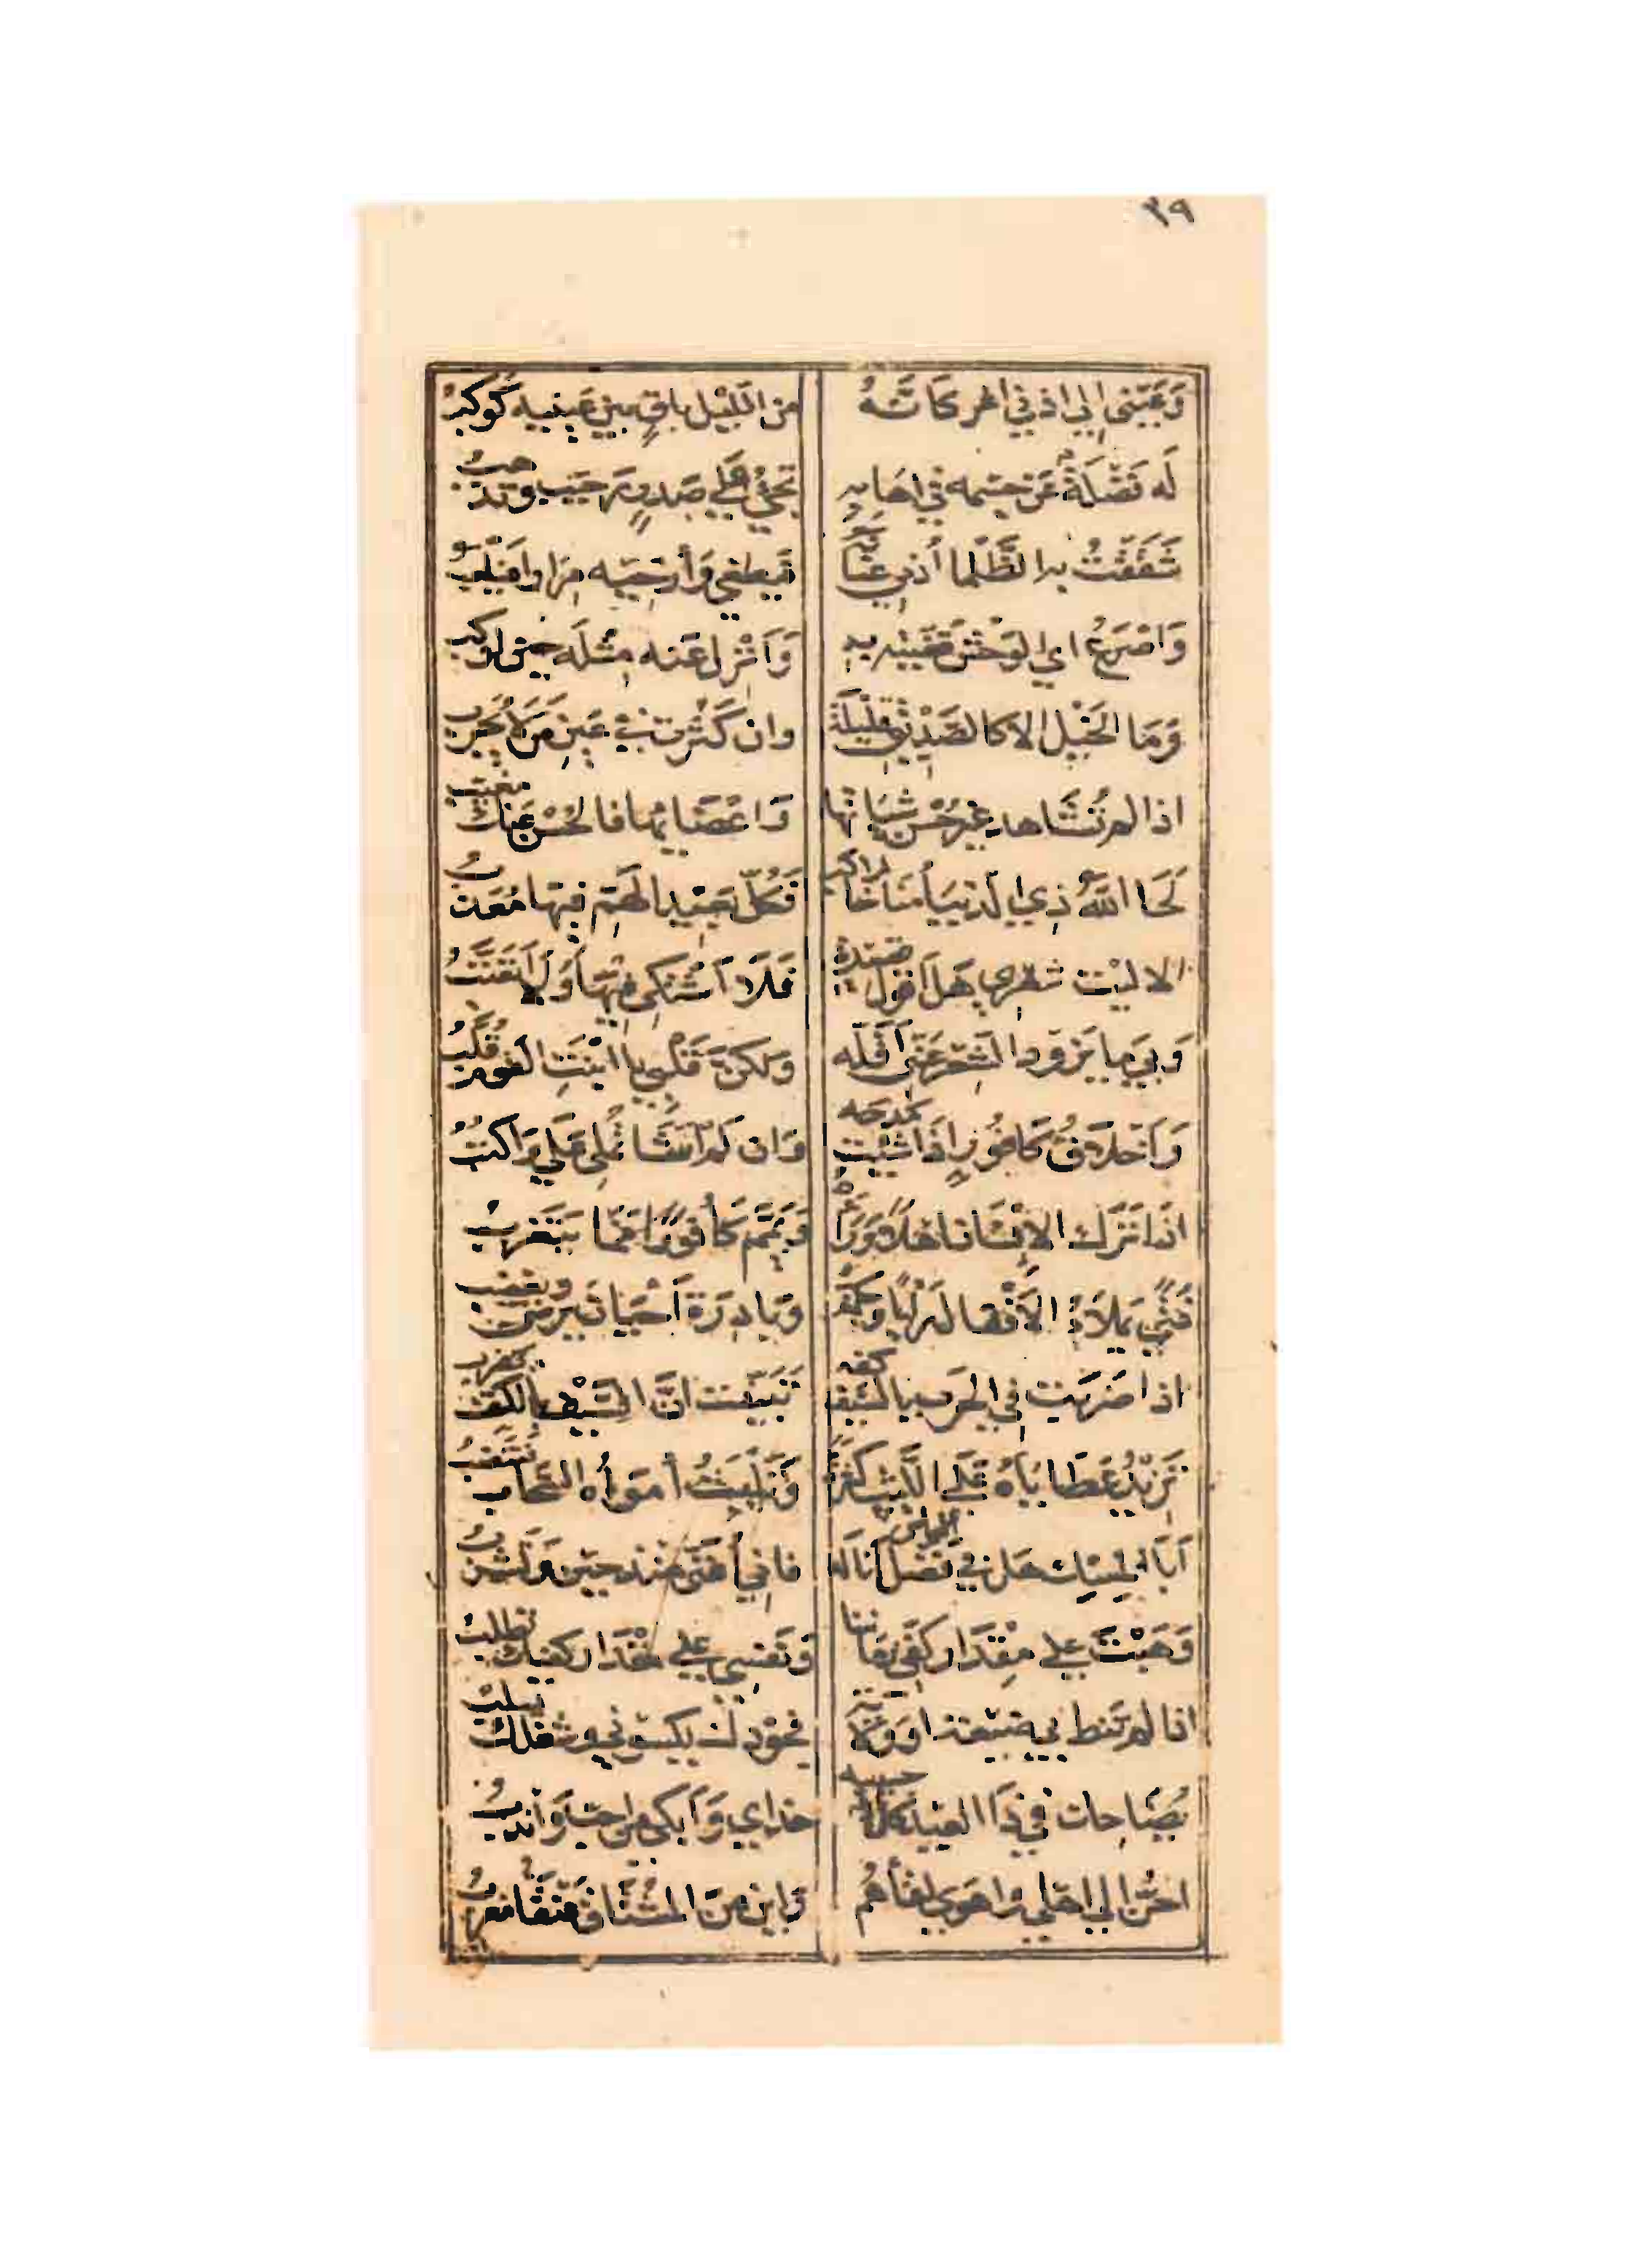 ٣٩
وَعَيني الي اذني اغر كَانّهُ من اللّيل باقٍ بين عَينيه كَوكبُ
لَه فَضْلَةٌ عَن جسمه في اهَابهِ تجيُ عَلي صَدرٍ رَحيب وتذهبُ
شَقَقتُ به الظَّلما أدني عنانه فيطغي وَأرخيه مِرَارا فيلعبُ
وَاصْرَعُ اي الوَحْش قَفّيته بهِ وَانزل عَنه مثله حين اركب
وَمَا الخَيْل الا كالصَّدِيْق قَلِيْلَة وان كَثُرت في عَينِ مَن لا يُجَرب
اذا لم تُشَاهد غير حُسْن شيَاتهَا وَاعْضَايهَا فالحُسْن عَنك مغيّب
لَحَا اللّهُ ذي الدنيَا مُنَاخًا لراكب فَكلّ بَعيد الهَمّ فيهَا مُعَذبُ
الا ليْت شعري هَل اقول قصيدة فَلَا اشتكي فيهَا وَلَا اتعَتّبُ
وَبي مَا يَزود الشعْر عَنّي اقله وَلكنّ قَلبي يا ابْنَت القَوم قُلّبُ
وَاخلَاقُ كَافُورٍ اذَا شئت مَدحَه وَان لَم اشَا تُملي عَلي وَاكتبُ
اذا تَرَك الانسَان اهلًا وَرَاءهُ وَيَمّم كَافورًا فمَا يَتغَربُ
فتًي يملَاُ الافْعَال رَايًا وَحِكمَةً وَبَادِرَة احْيَان يَرضي ويغضب
اذا ضَرَبت في الحَرب بالسّيف كفه تَبيّنت انَّ السَّيْف بالكفّ يضرب
تَزيدُ عَطَايَاهُ عَلي اللّبث كثرَةً وَتَلبَثُ أموَاهُ السّحَاب فتَنضبُ
اَبَا المِسْك هَل في الكاس فَضل انَاله فاني أُغَنّي مُنذ حين وَتشربُ
وَهَبْتَ علي مِقدَار كفَّي زَمَاننا وَنَفسي علي مقدَار كفّيك تطلبُ
اذا لم تَنط بي ضَيعَة اوولاية فجُودك يكسوني وشغلك يسلبُ
يُضَاحك في ذَا العيد كلٌّ حبيبه حذَاي وَابكي من احبّ وَاندبُ
احنّ الي اهلي وَاهوَي لقَاهُمُ وَاين من المُشتَاق عنقَا مُغربُ